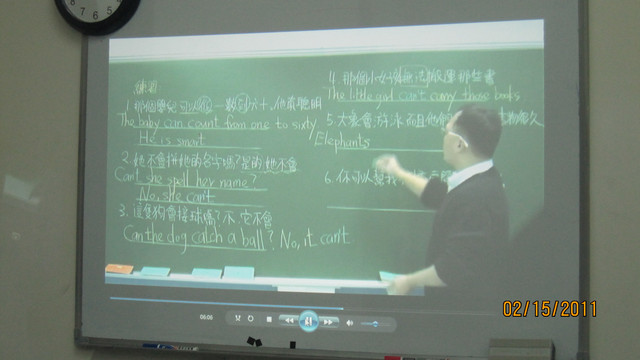 練習
1. 那個嬰兒可以從一數到六十。他很聰明
The baby can count from one to sixty
He is smart
2. 她不會拼她的名字嗎?是的,她不會
Can't she spell her name?
No, she can't
3. 這隻狗會接球嗎?不,它不會
Can the dog catch a ball? No, it can't
4. 那個小女孩無法搬那些書
The little girl can't carry those books
5. 大象會游泳
Elephants
6. 你可以
06:05
02/15/2011